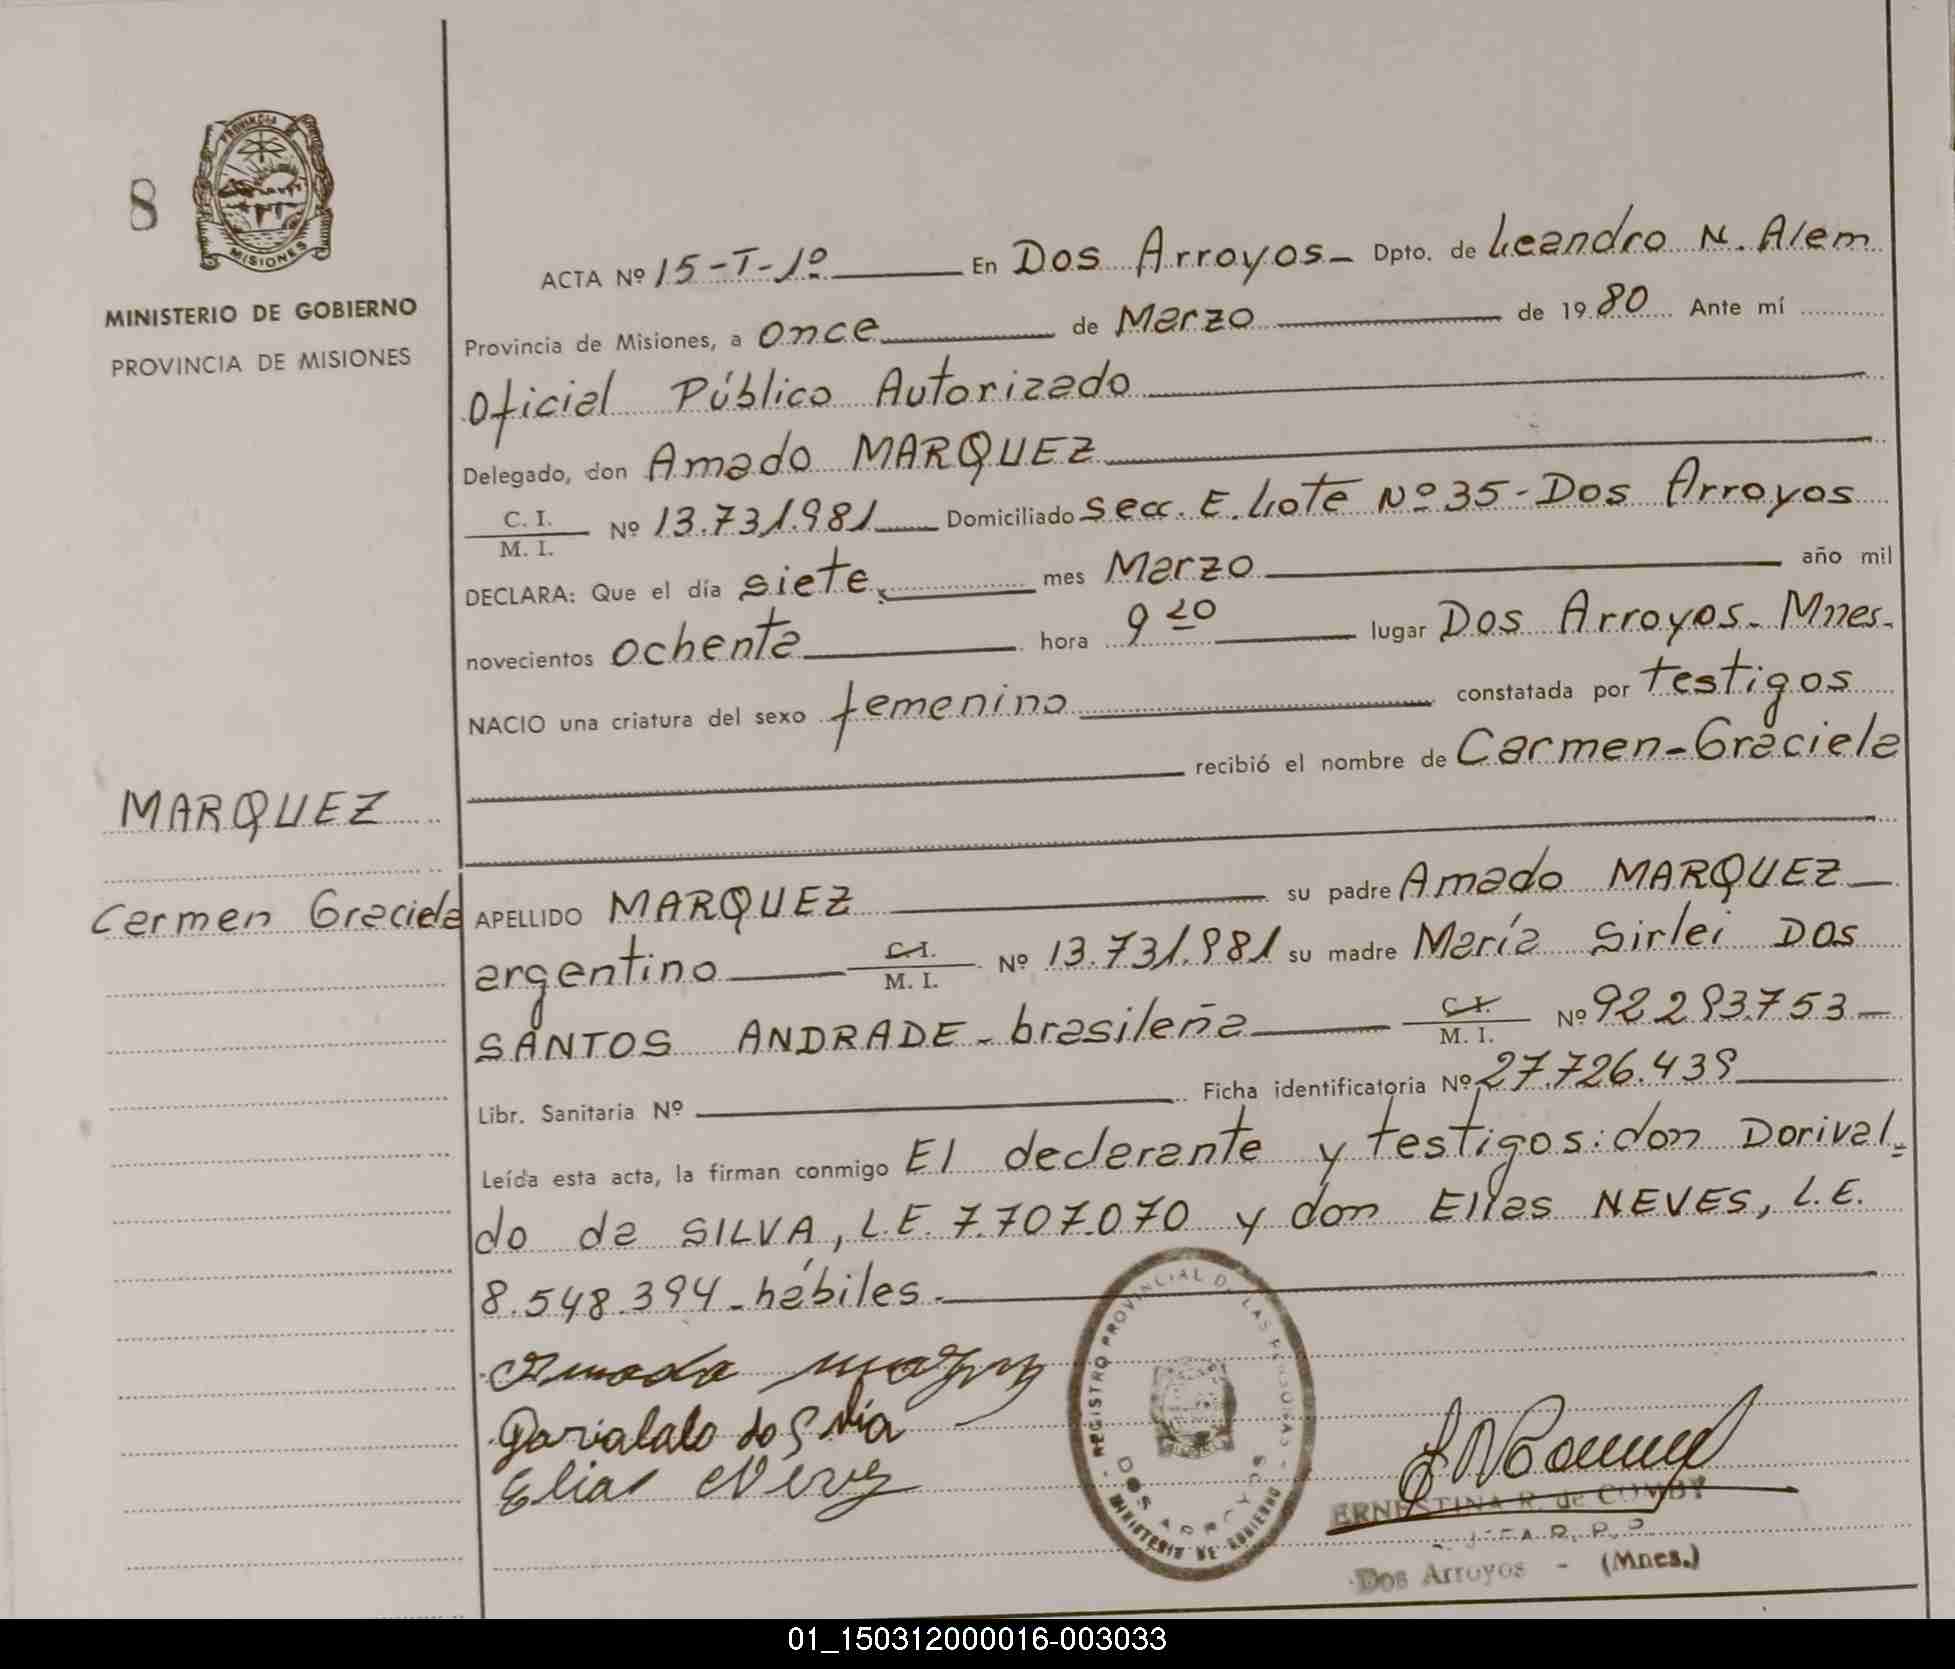 8
PROVINCIA DE
MISIONES
MINISTERIO DE GOBIERNO
PROVINCIA DE MISIONES
MARQUEZ
Carmen Graciela
ACTA Nº 15-T-1º En Dos Arroyos- Dpto. de Leandro N. Alem
Provincia de Misiones, a once de Marzo de 1980 Ante mí
Oficial Público Autorizado
Delegado, don Amado MARQUEZ
C. I. / M. I. Nº 13.731.981 Domiciliado Secc. E. Lote Nº 35-Dos Arroyos
DECLARA: Que el día siete mes Marzo año mil
novecientos ochenta hora 9 20 lugar Dos Arroyos- Mnes.
NACIO una criatura del sexo femenino constatada por testigos
recibió el nombre de Carmen-Graciela
APELLIDO MARQUEZ su padre Amado MARQUEZ
argentino C.I. / M. I. Nº 13.731.981 su madre María Sirlei DOS
SANTOS ANDRADE - brasileña C.I. / M. I. Nº 92293753
Libr. Sanitaria Nº Ficha identificatoria Nº 27.726.439
Leída esta acta, la firman conmigo El declarante y testigos: don Dorival=
do da SILVA, L.E. 7.707.070 y don Elías NEVES, L.E.
8.548.394 - hábiles.
Elias
REGISTRO PROVINCIAL DE LAS PERSONAS
DOS ARROYOS
MINISTERIO DE GOBIERNO
ERNESTINA R. de COMBY
Dos Arroyos - (Mnes.)
01_150312000016-003033